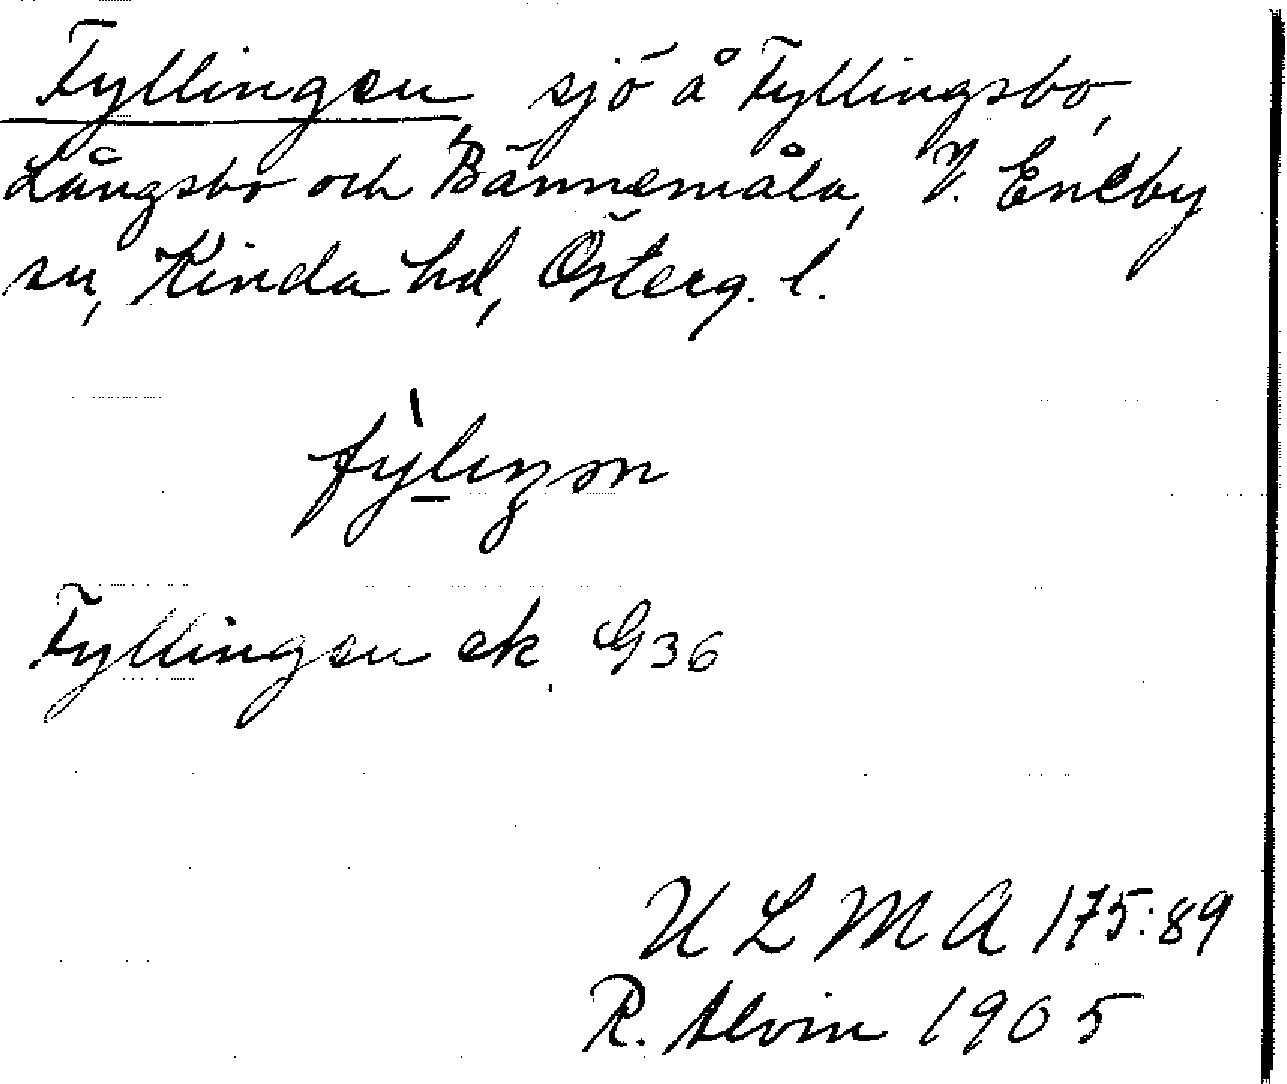 Fyllingen, sjö å Fyllingsbo,
Långsbo och Bännemåla, V. Eneby
sn, Kinda hd, Österg. l.
Fyllingen ek. G36
U L M A 175:89
R. Alvin 1905